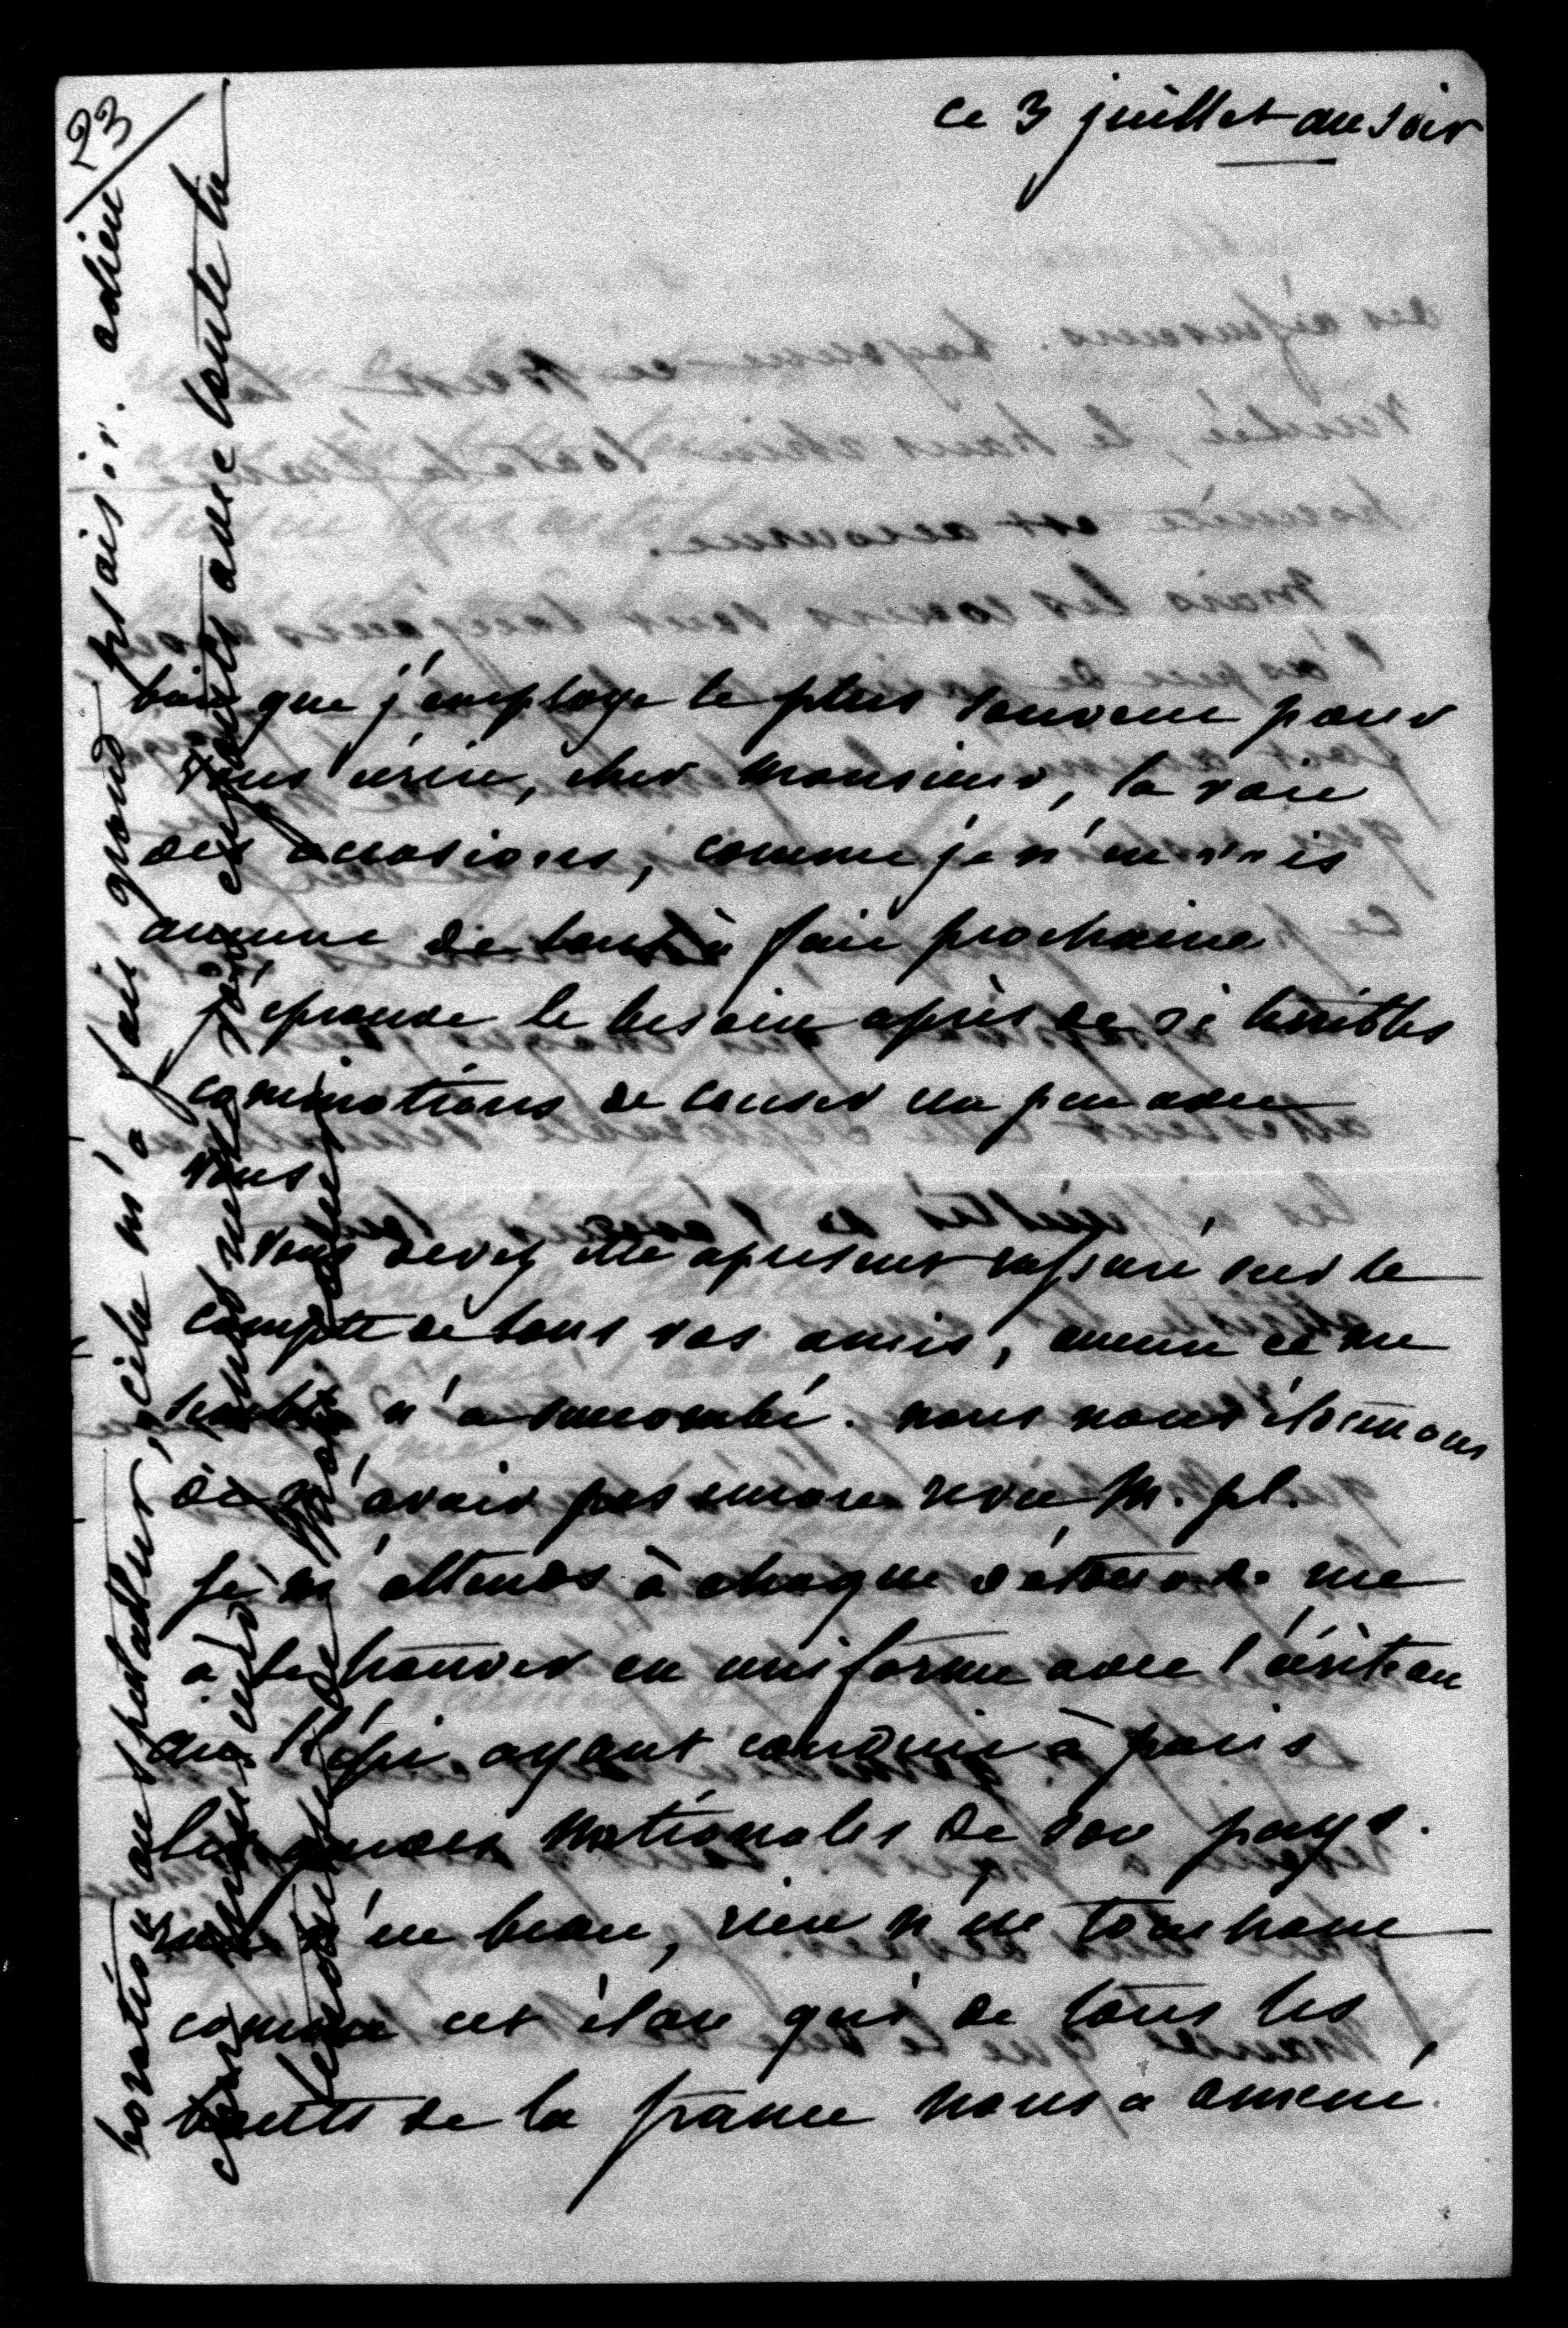 23
ce 3 juillet au soir
bien que j'employe le plus souvent pour
vous écrire, cher Monsieur, la voie
des occasions, comme je n'en vois
aucune de tout à fait prochaine
j'éprouve le besoin après de si terribles
commotions de causer un peu avec
vous.
vous devez être apresent rassuré sur le
compte de tous vos amis, aucun ce me
semble n'a succombé. nous nous étonnons
de n'avoir pas encore revu M. pl.
je m'attends à chaque détour de rue
à le trouver en uniforme avec l'écriteau
au Képi ayant conduit à paris
les gardes nationales de son pays.
rien n'est beau, rien n'est touchant
comme cet élan qui de tous les
bouts de la france nous a amené
boration au spectateur, cela m'a fait grand plaisir. adieu
cher Monsieur, avec toute la